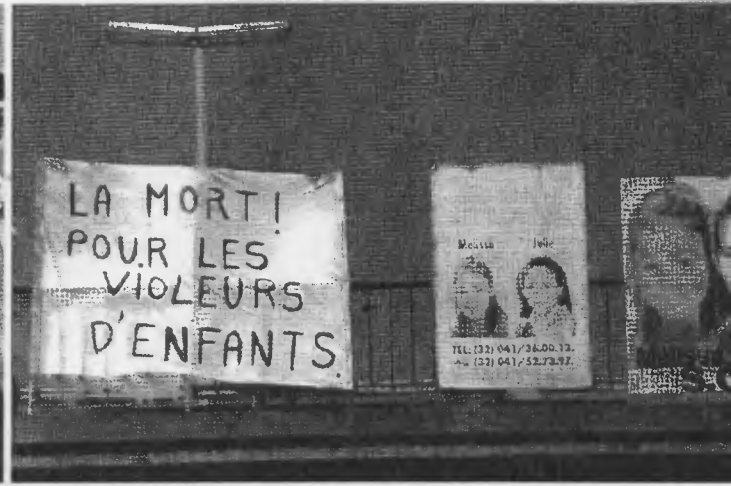 LA MORT!
POUR LES
VIOLEURS
D'ENFANTS.
Melissa Julie
TEL: (32) 041/36.00.13.
(32) 041/52.73.97.